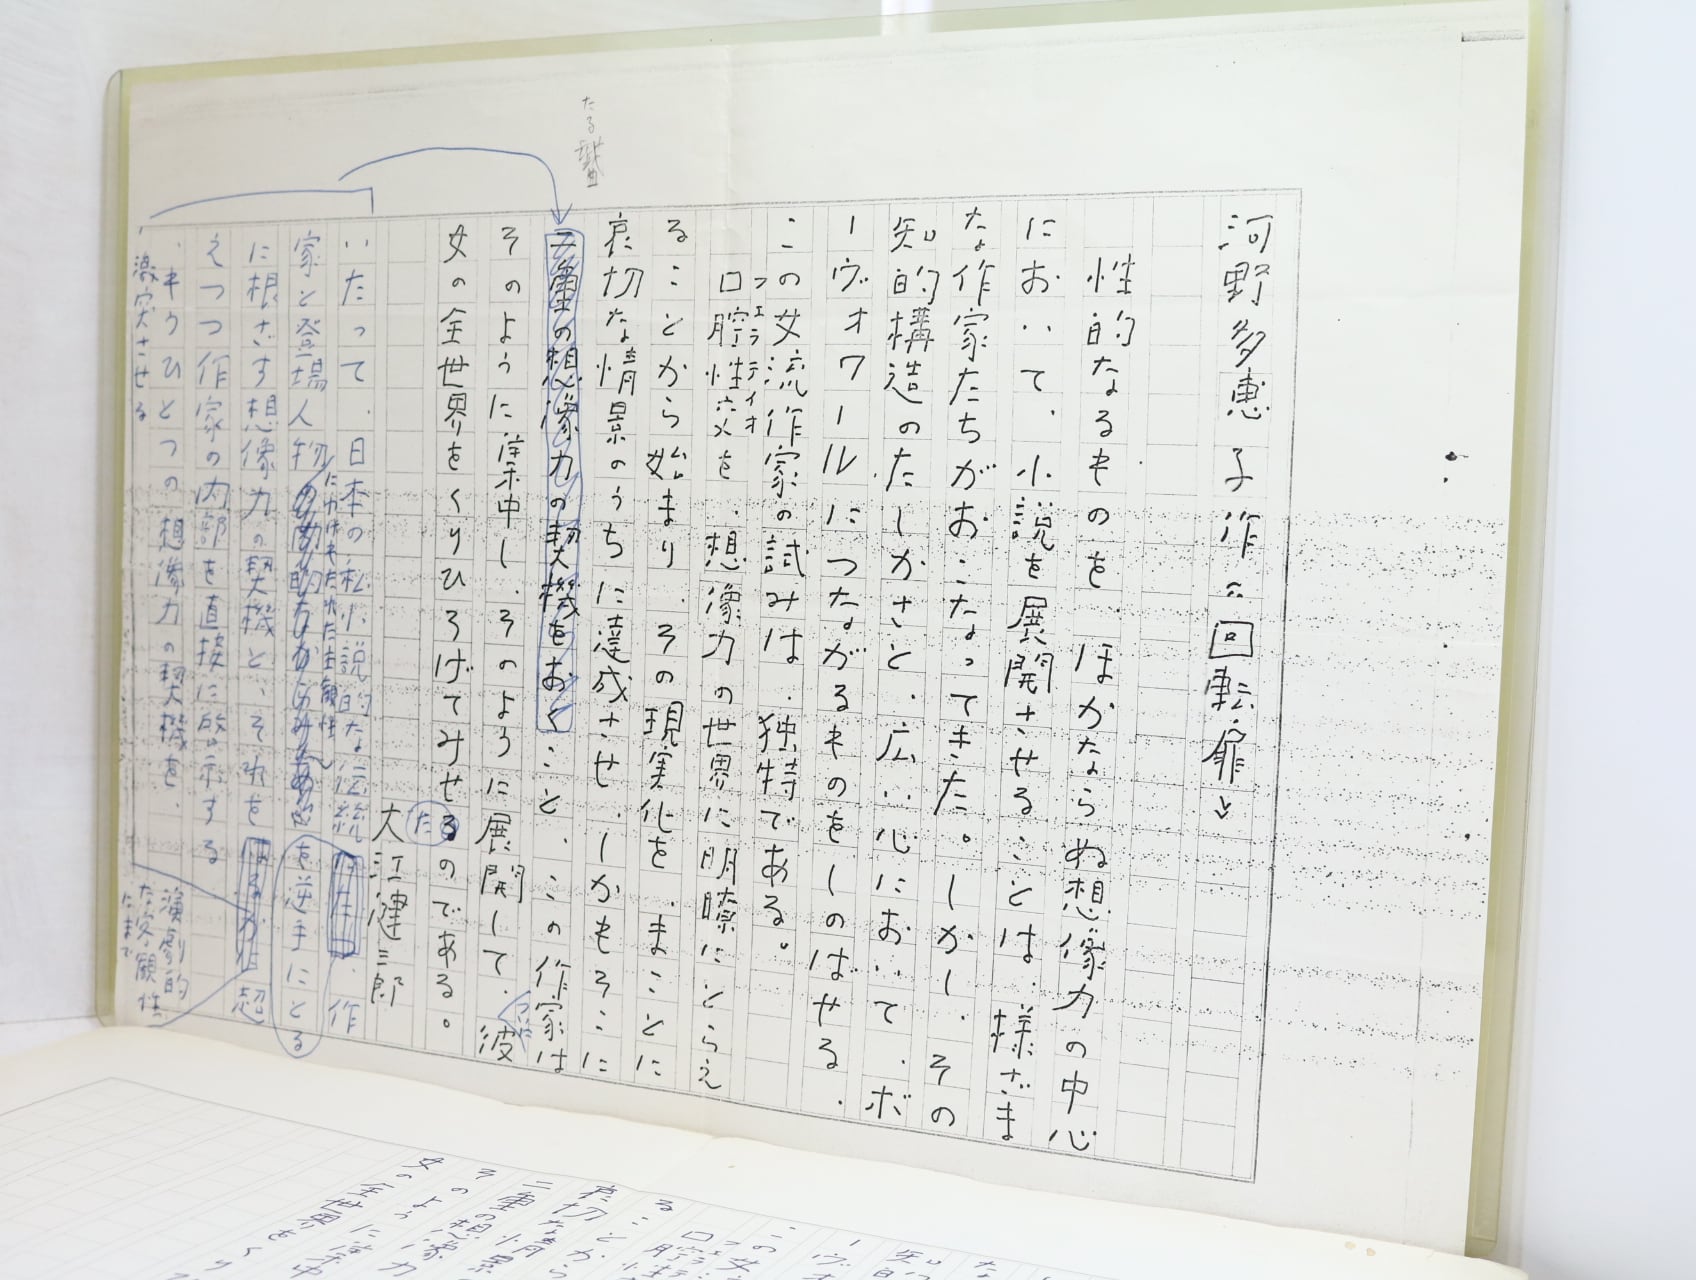 河野多惠子作《回転扉》
性的なるものを、ほかならぬ想像力の中心
において、小説を展開させることは、様ざま
な作家たちがおこなってきた。しかし、その
知的構造のたしかさと、広い心において、ボ
ーヴォワールにつながるものをしのばせる、
この女流作家の試みは、独特である。
フェラティオ
口腔性交を、想像力の世界に明瞭にとらえ
ることから始まり、その現実化を、まことに
哀切な情景のうちに達成させ、しかもそこに
二重の想像力の契機をおくこと、この作家は
そのように集中し、そのように展開して、彼
ついに
女の全世界をくりひろげてみせるのである。
た
大江健三郎
いたって、日本の私小説的な伝統
はたまた、作
にわけもたれた主観性
家と登場人物
を逆手にとる
に根ざす想像力の契機と、それを
超
えつつ作家の内部を直接に啓示する
、もうひとつの想像力の契機を、
演劇的
な客観性
にまで
激突させる
たる
この女
ーヴォ
知
な
口腔
フェラテ
ることから
哀切な情景
二重の想像力
そのように集中
女の全世界をくり